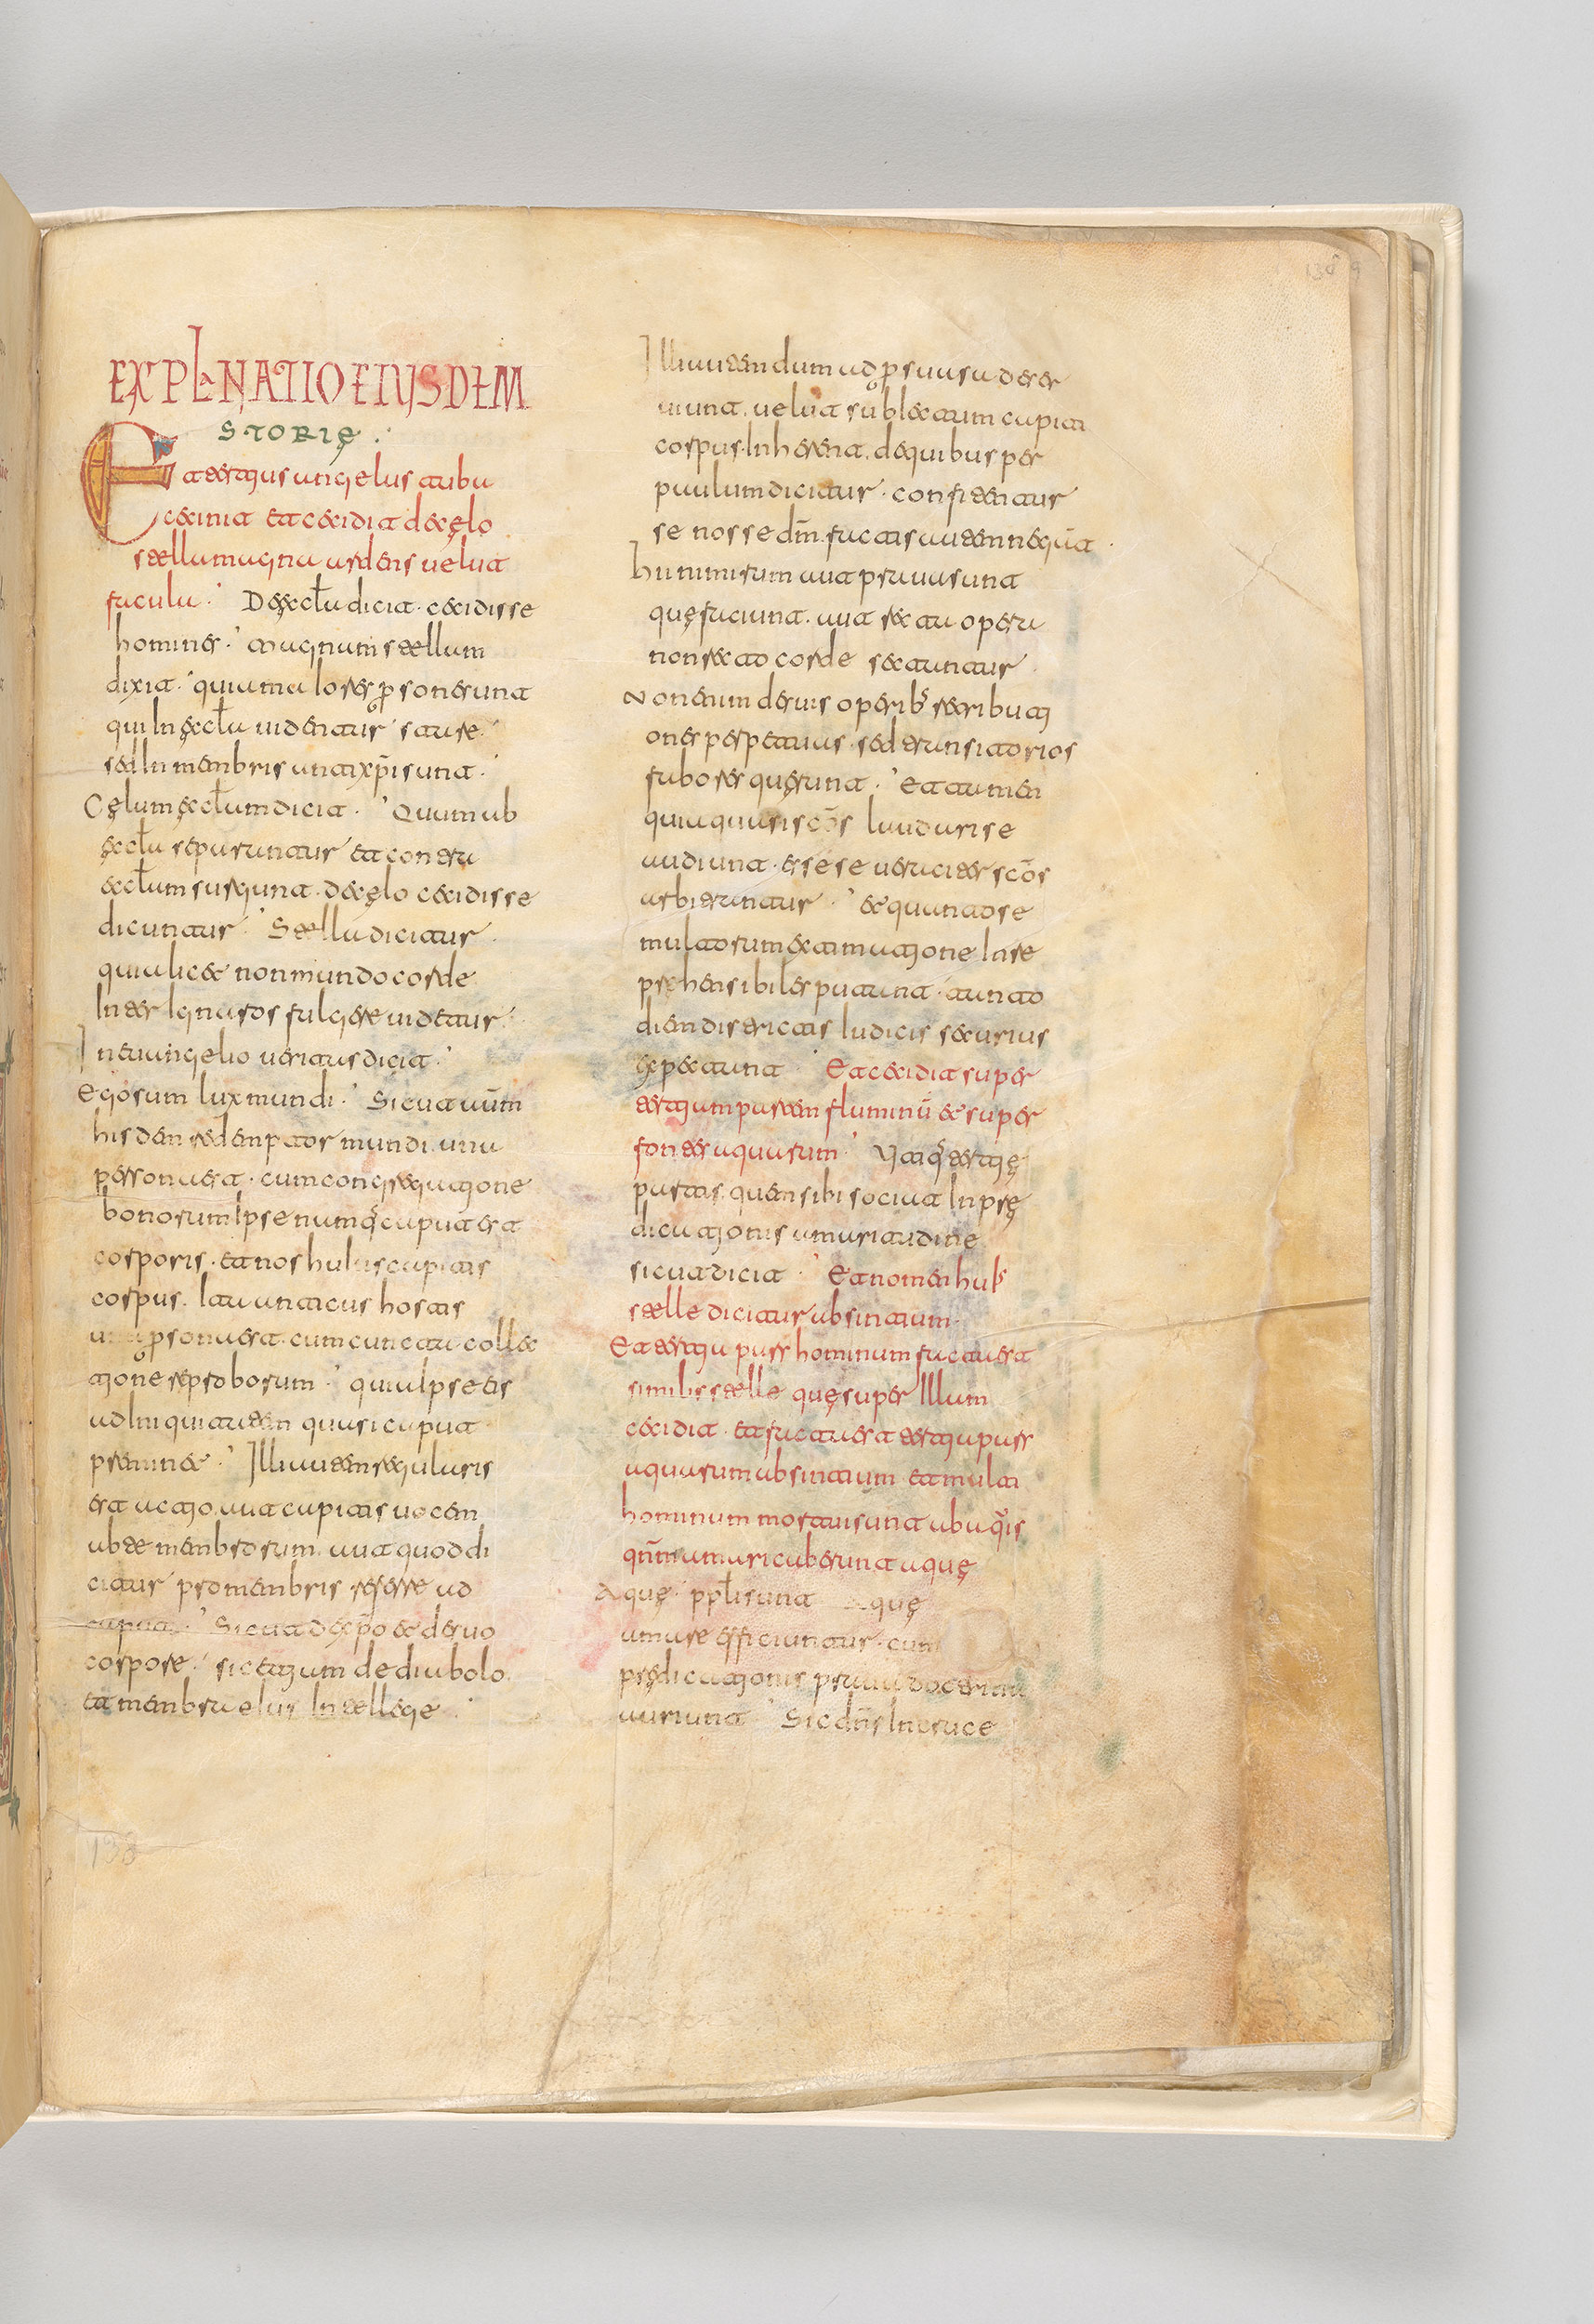 EXPLaNATIO EIUSDEM
STORIĘ
Et tertius angelus tuba
cecinit et cecidit de cęlo
stella magna ardens uelut
facula. De ęcl̄a dicit cecidisse
homines. magnum stellam
dixit. quia maiores psone sunt
qui In ęcl̄a uidentur stare
sed In membris antixp̄i sunt.
Cęlum ęcl̄am dicit. Quum ab
ęcl̄a separantur et contra
ecl̄am surgunt. de cęlo cecidisse
dicuntur. Stella dicitur
quia licet non mundo corde
Inter Ignaros fulgere uidetur.
In euangelio ueritas dicit.
Ego sum lux mundi. Sicut aūm
hisdem redemptor mundi una
persona est. cum congregatione
bonorum Ipse namq caput est
corporis. et nos huius capitis
corpus. Ita anticus hostis
una psona est. cum cuncta collec
tione reproborum. quia Ipse eis
ad Iniquitatem quasi caput
preminet. Illa autem regularis
est actio. aut capitis uocem
membrorum. aut quod di
citur pro membris referre ad
caput. Sicut de xp̄o et de suo
corpore. sic etiam de diabolo
et membra eius Intellege.
Illi autem dum ad p
uiunt. uelut sublectum capiti
corpus Inherent. de quibus per
paulum dicitur. confitentur
se nosse dm̄. factis autem negant.
hii nimirum aut praua sunt
quę faciunt. aut recta opera
non recto corde sectantur
Non enim de suis operib retributi
ones perpetuas. sed transitorios
fabores quęrunt. Et tamen
quia quasi sc̄os laudari se
audiunt. esse se ueraciter sc̄os
arbitrantur. et quanto se
multorum extimatione Inre
prehensibiles putant. tanto
diem districtis Iudicis securius
expectant. Et cecidit super
tertiam partem fluminū et super
fontes aquarum. Utiq tertię
partis quem sibi sociat In prę
dicationis amaritudine
sicut dicit. Et nomen huius
stelle dicitur absintium.
Et tertia pars hominum facta est
similis stelle quę super Illum
cecidit. et facta est tertia pars
aquarum absintium et multi
hominum mortui sunt ab aquis
qn̄m amaricate sunt aquę
Aquę ppl̄i sunt. aquę
amare efficiuntur. cum
prędicationis praua doctrina
auriunt. Sic dn̄s In cruce